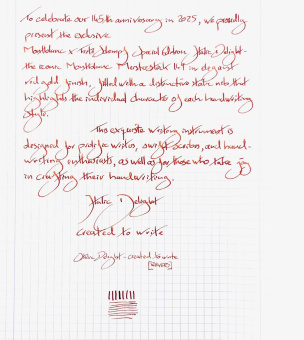 To celebrate our 145th anniversary in 2025, we proudly
present the exclusive
Montblanc x Fritz Schimpf Special Edition Italic Delight
the iconic Montblanc Meisterstück 147 in elegant
red gold finish, fitted with a distinctive italic nib that
highlights the individual character of each handwriting
style.
This exquisite writing instrument is
designed for prolific writers, swift scribes, and hand-
writing enthusiasts, as well as for those who take joy
in crafting their handwriting.
Italic Delight
created to write
Italic Delight - created to write